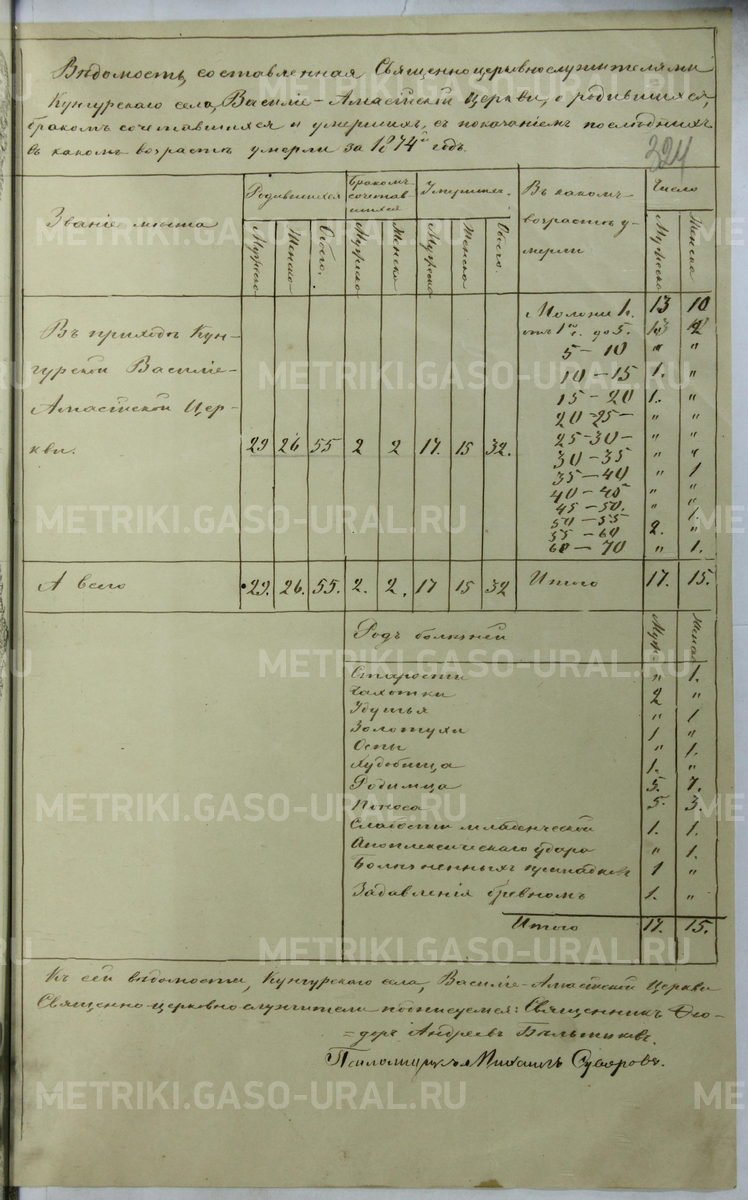 Вѣдомость, составленная Священноцерковнослужителями
Кунгурскаго села, Василіе-Амастійской Церкви, о родившихся,
бракомъ сочетавшихся и умершихъ, съ показаніемъ послѣднихъ
въ какомъ возрастѣ умерли за 1874й годъ.
324
Званіе мѣста
Родившихся
Бракомъ сочетавшихся
Умершихъ.
Въ какомъ возрастѣ умерли
Число
Мужеска Женска Обоего. Мужеска Женска Мужеска Женска Обоего. Мужеска Женска
Въ приходѣ Кун-
гурской Василіе-
Амастійской Цер-
кви. 29 26 55 2 2 17. 15 32.
1 г. 13 10
отъ 1го г. до 5. 2
5 – 10 " "
10 – 15 1. "
15 – 20 1. "
20 – 25 – " "
25 – 30 – " "
30 – 35 " "
35 – 40 " 1
40 – 45 " "
45 – 50. " "
50 – 55 1.
55 – 60 2. "
60 – 70 " 1.
А всего 29. 26. 55. 2. 2. 17 15 32 Итого 17. 15.
Родъ болѣзней Муж. Женска
Старости " 1.
Чахотки 2 "
Удушья " 1
Золотухи 1 "
Оспы " 1.
Худобища 1. "
Родимца 5. 7.
Поноса 5. 3.
Слабости младенческой 1. 1.
Апоплексическаго удара " 1.
Болѣзненныхъ припадковъ 1 "
Задавленія бревномъ 1. "
Итого 17. 15.
Къ сей вѣдомости, Кунгурскаго села, Василіе-Амастійской Церкви
Священно-церковнослужители подписуемся: Священникъ Ѳео-
=доръ Андреевъ
Псаломщикъ Михаилъ Суворовъ.
METRIKI.GASO-URAL.RU